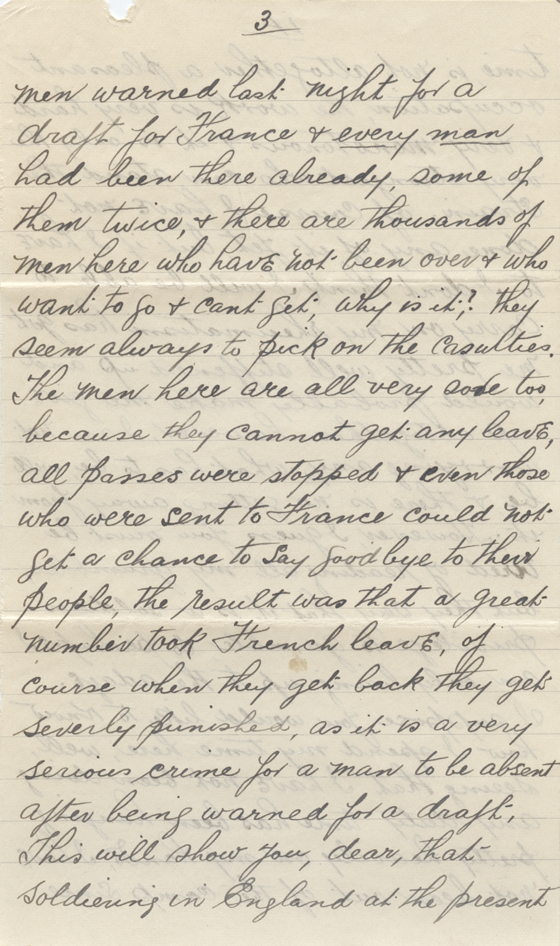 3
men warned last night for a
draft for France & every man
had been there already, some of
them twice, & there are thousands of
men here who have not been over & who
want to go & cant get, why is it,? they
seem always to pick on the casulties.
The men here are all very sore too,
because they cannot get any leave,
all passes were stopped & even those
who were sent to France could not
get a chance to say goodbye to their
people, the result was that a great
number took French leave, of
course when they get back they get
severly punished, as it is a very
serious crime for a man to be absent
after being warned for a draft,
This will show you, dear, that
soldiering in England at the present